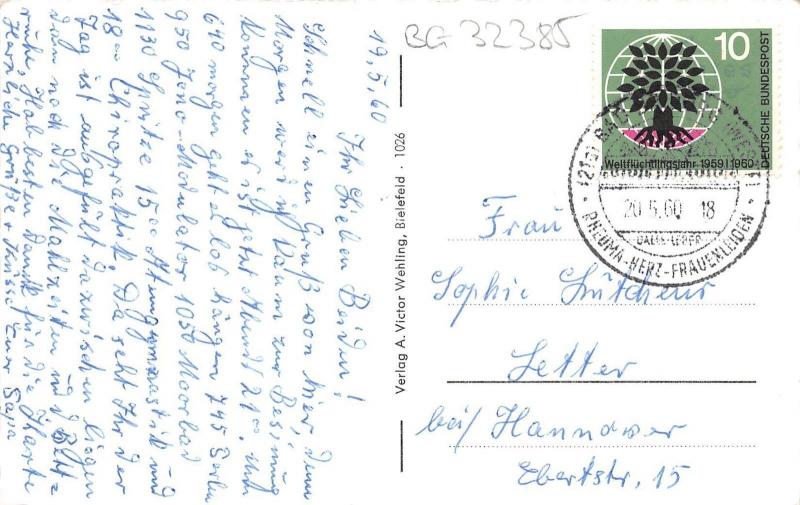 BG 32385
19.5.60
Ihr Lieben Beiden!
Schnell einen Gruß von hier, denn
Morgen werd ich kaum zur Besinnung
kommen es ist jetzt Abends 21⁰⁰. Um
6⁴⁰ morgen geht es los hängen 7⁴⁵
9⁵⁰ Jono-Modulator 10⁵⁰ Moorbad
11³⁰ Spritze 15⁰⁰ Atemgymnastik und
18⁰⁰ Chiropraktik. Da seht Ihr der
Tag ist ausgefüllt dazwischen liegen
dann noch die Mahlzeiten und
ruhe, Habt besten Dank für die Karte
Herzliche Grüße u Küsse Euer Papa
Verlag A. Victor Wehling, Bielefeld · 1026
10
DEUTSCHE BUNDESPOST
Weltflüchtlingsjahr 1959|1960
20.5.60 18
RHEUMA-HERZ-FRAUENLEIDEN
Frau
Sophie
Letter
bei Hannover
Ebertstr. 15